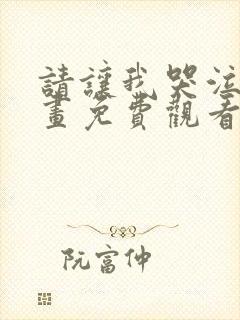 請讓我哭泣
畫免費觀看
阮富仲